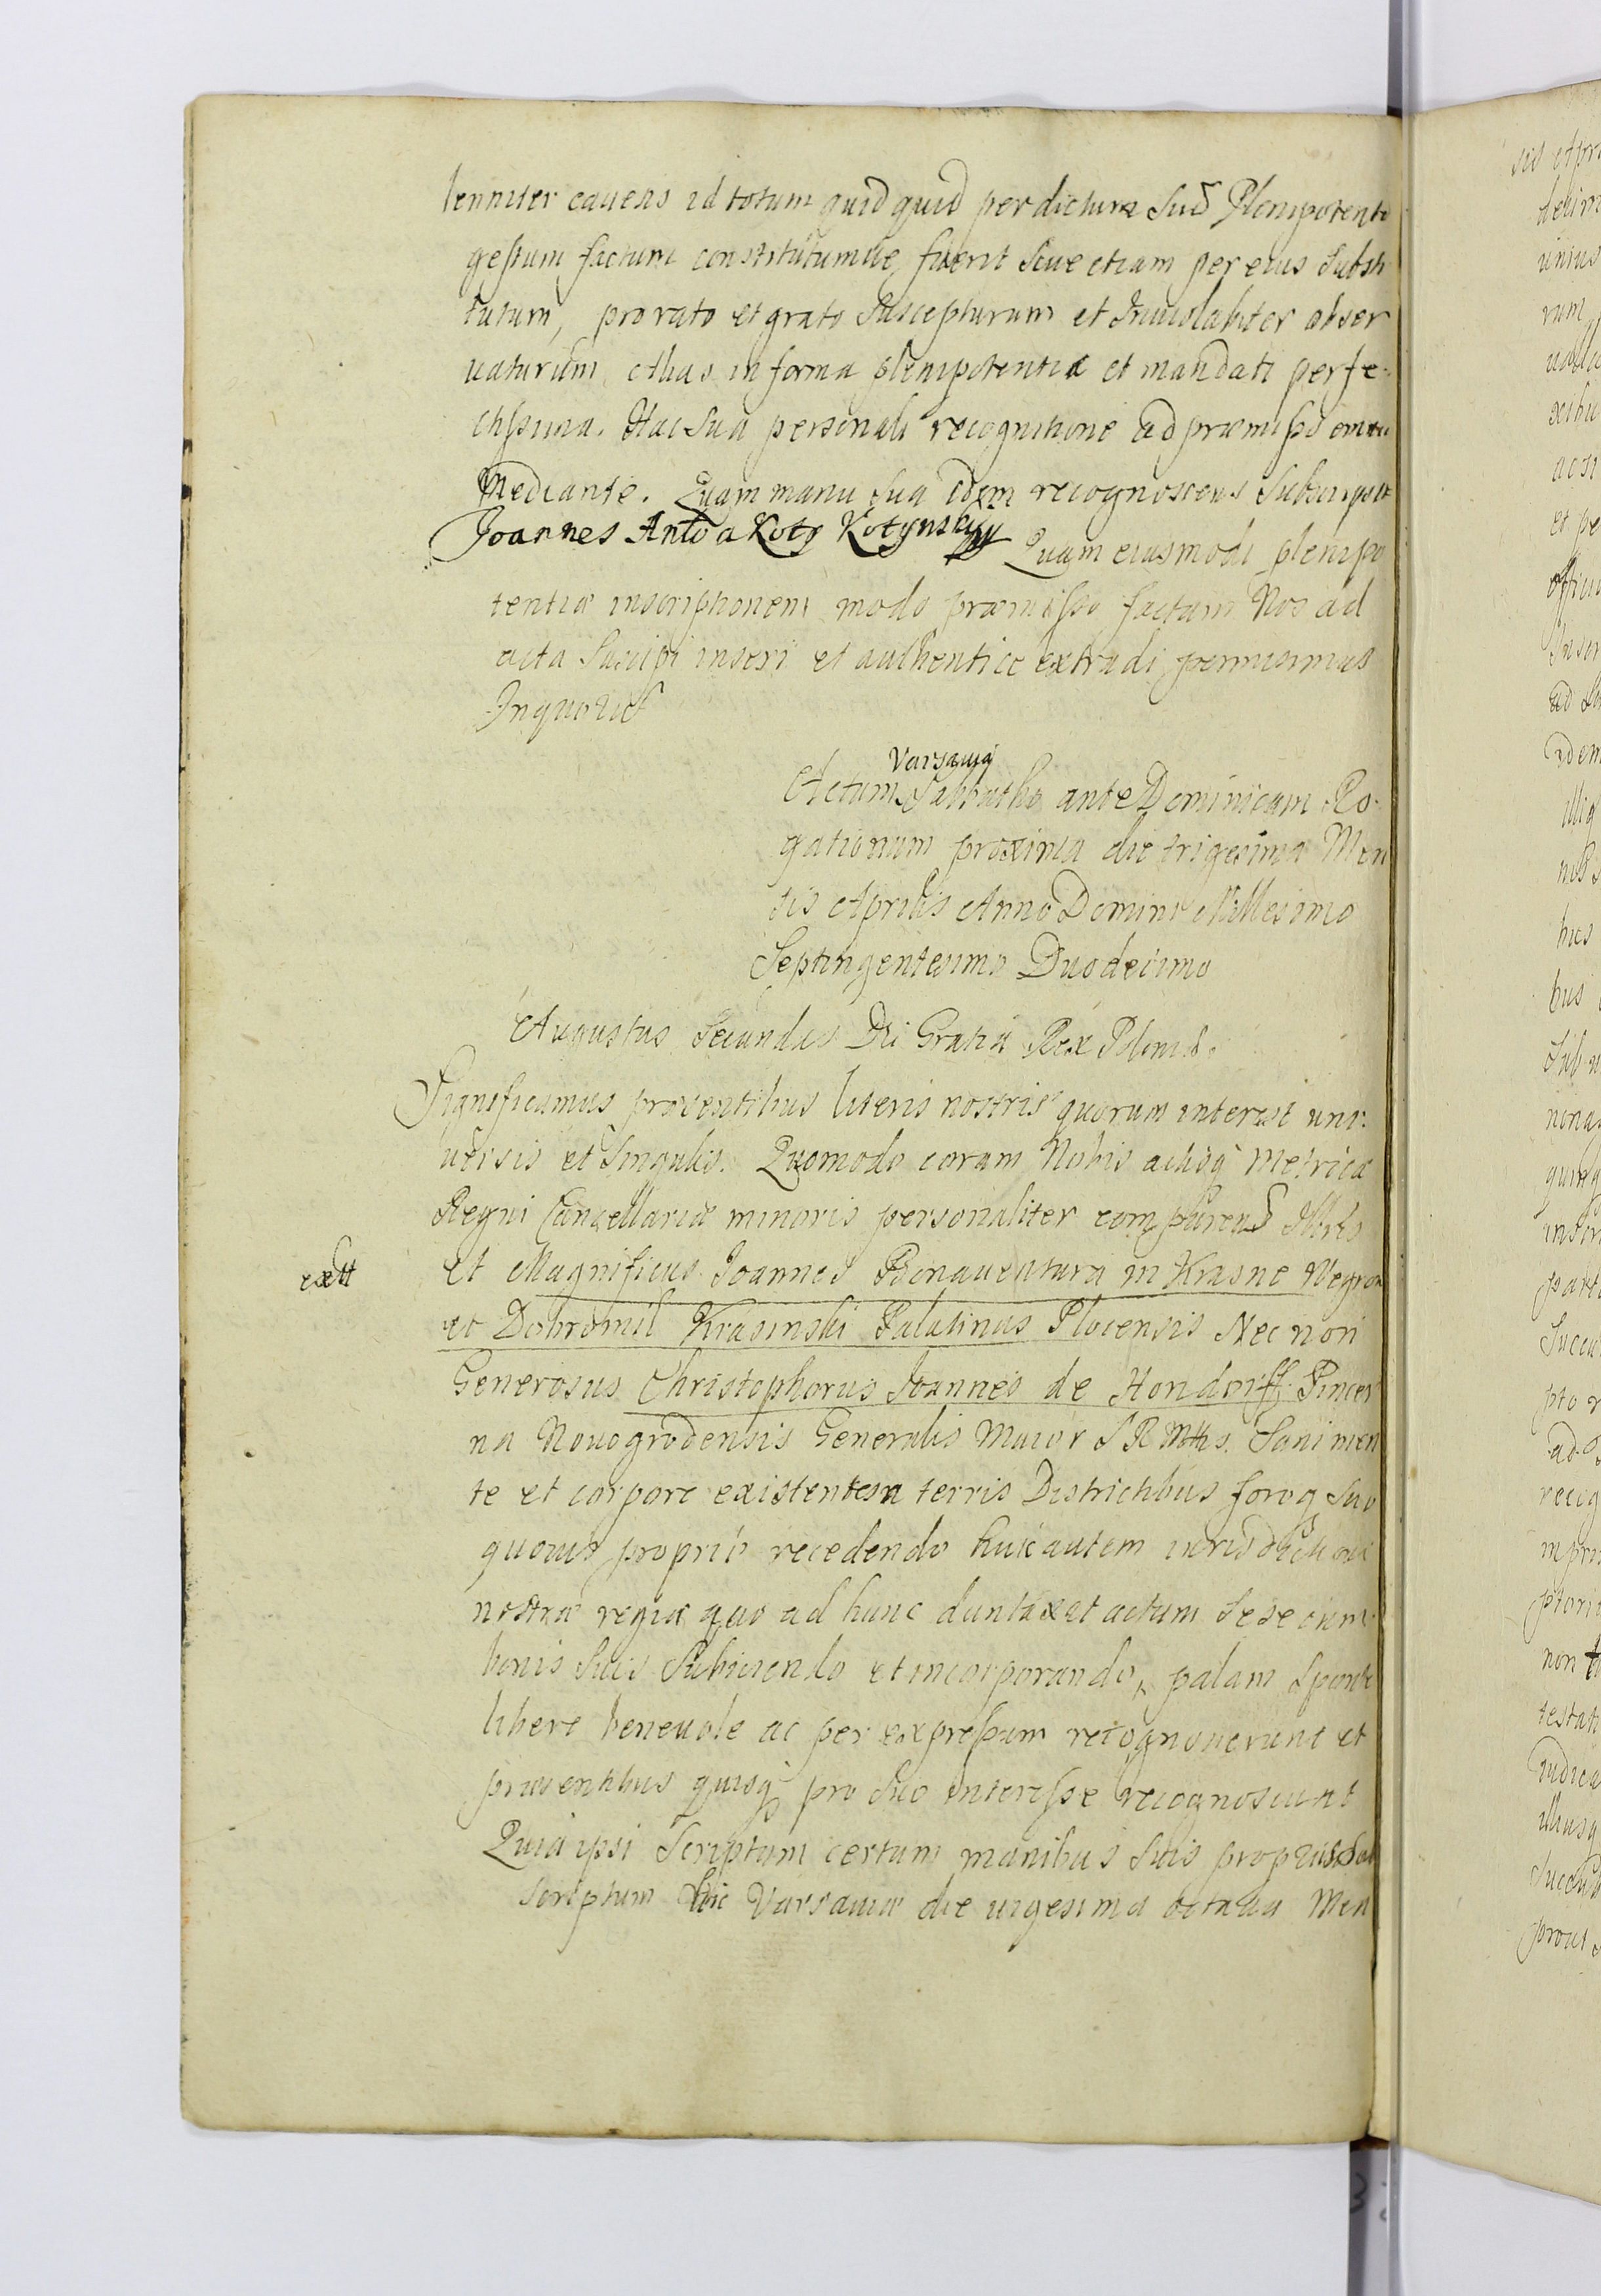 lenniter cauens id totum quidquid per dictum suũ Plenipotente
gestum factum constitutumue fuerit siue etiam per eius substi
tutum, pro rato et grato suscepturum et Inuiolabiter obser
uaturum, Alias in forma plenipotentiæ et mandati perfe-
ctissima. Hac sua personali recognitione ad præmissa omnia
mediante. Quam manu sua idem recognoscens subscripsit
Joannes Anto a Koty Kotynskij
Quam eiusmodi plenipo
tentiæ inscriptionem modo præmisso factam Nos ad
acta suscipi inseri et authentice extradi permisimus
In quorũ
Varsauiæ
Actum Sabbatho ante Dominicam Ro-
gationum proxima die trigesima Men
sis Aprilis Anno Domini Millesimo
Septingentesimo Duodecimo
Augustus Secundus Dei Gratia Rex Poloniæ.
Significamus præsentibus literis nostris quorum interest uni-
uersis et singulis. Quomodo coram Nobis actisq Metricæ
Regni Cancellariæ minoris personaliter comparens Illris
extt
et Magnificus Joannes Bonauentura in Krasne Wegrow
ac Dobromil Krasinski Palatinus Plocensis Nec non
Generosus Christophorus Joannes de Hondorff Pincer
na Nouogrodensis Generalis Maior S R Mttis. Sani men
te et corpore existentes a terris Districtibus foroq suo
quouis proprio recedendo huic autem iurisdictioni
nostræ regiæ quo ad hunc duntaxat actum sese cum
bonis suis subiiciendo et incorporando, palam sponte
libere beneuole ac per expressum recognouerunt et
præsentibus quisq pro suo interesse recognoscunt
Quia ipsi scriptum certum manibus suis propriis sub
scriptum hic Varsauiæ die uigesima octaua Men